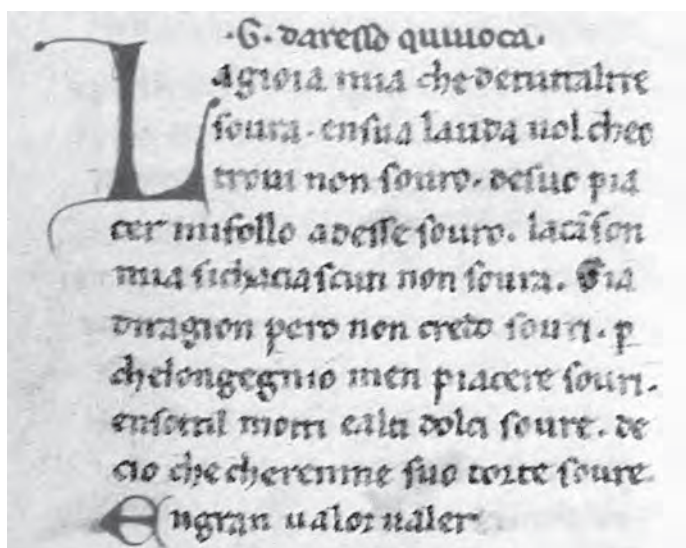 ·G· daresso quiuoca·
La gioia mia che detuttaltre
soura · ensua lauda uol cheo
troui non souro · desuo pia
cer mifollo adesse souro · lacãson
mia sichaciascun non soura · Gia
diragion pero non credo souri · p
chelongegnio men piacere souri ·
ensottil motti ealti dolci soure · de
cio che cheremne suo torte soure
Engran ualor ualer